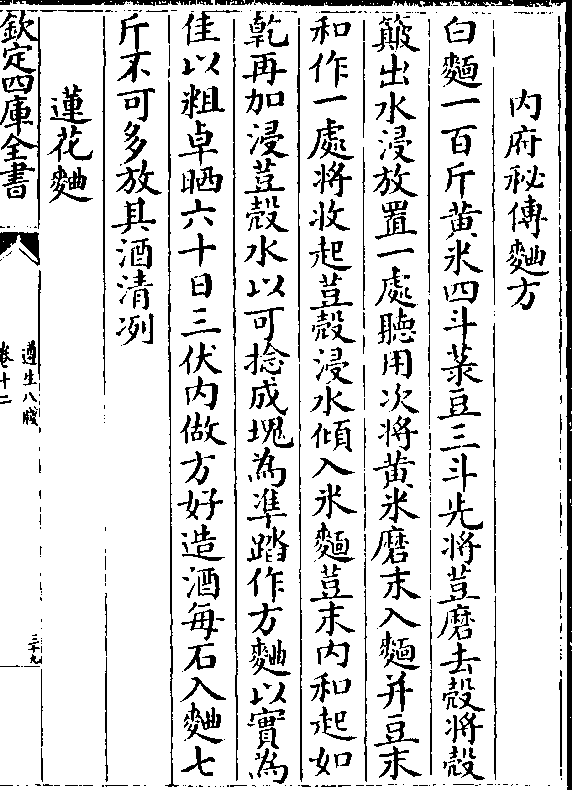 内府秘傳麯方
白麵一百斤黄米四斗菉豆三斗先將荳磨去殼將殼
簸出水浸放置一處聽用次將黄米磨末入麵并豆末
和作一處將收起荳殼浸水傾入米麵荳末内和起如
乾再加浸荳殼水以可捻成塊為準踏作方麯以實為
佳以粗卓晒六十日三伏内做方好造酒每石入麯七
斤不可多放其酒清冽
蓮花麯
欽定四庫全書
遵生八牋
卷十二
三十九